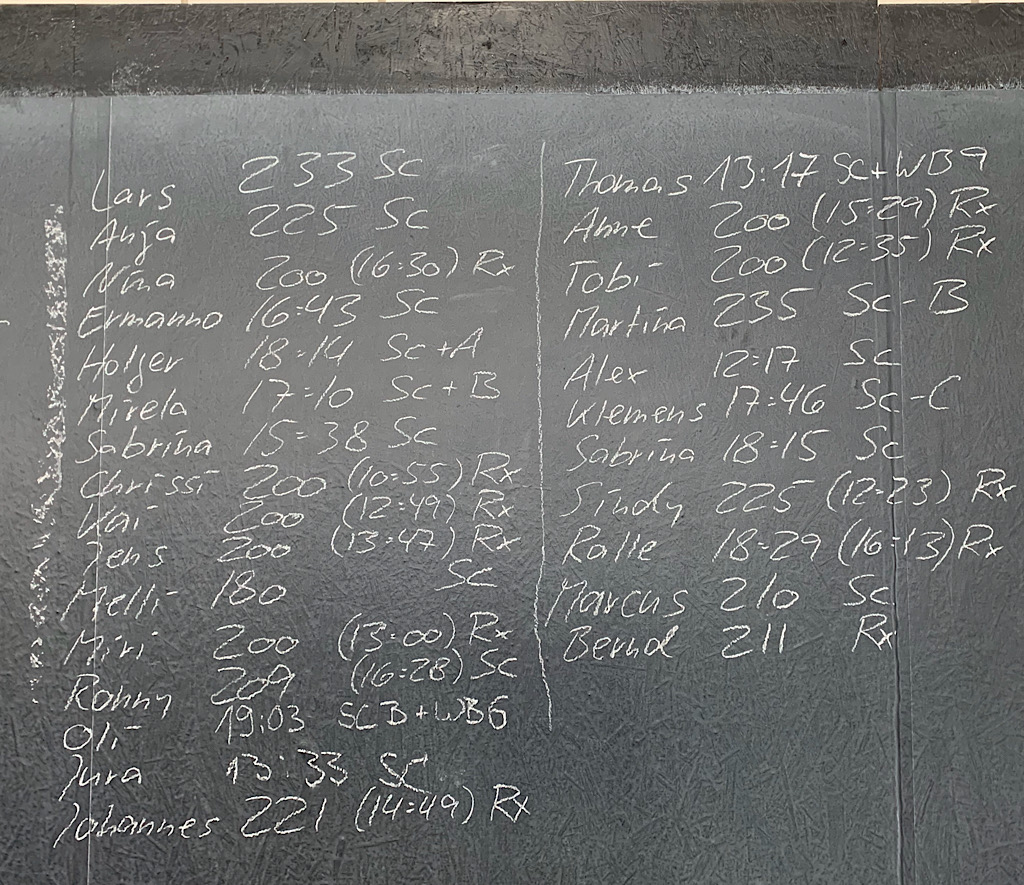 Lars 233 Sc
Anja 225 Sc
Nina 200 (16:30) Rx
Ermanno 16:43 Sc
Holger 18:14 Sc+A
Mirela 17:10 Sc+B
Sabrina 15:38 Sc
Chrissi 200 (10:55) Rx
Kai 200 (12:49) Rx
Jens 200 (13:47) Rx
Melli 180 Sc
Miri 200 (13:00) Rx
Ronny 209 (16:28) Sc
Oli 19:03 SCB+WB6
Jura 13:33 Sc
Johannes 221 (14:49) Rx
Thomas 13:17 Sc+WB9
Anne 200 (15:29) Rx
Tobi 200 (12:35) Rx
Martina 235 Sc-B
Alex 12:17 Sc
Klemens 17:46 Sc-C
Sabrina 18:15 Sc
Sindy 225 (12:23) Rx
Ralle 18:29 (16:13) Rx
Marcus 210 Sc
Bernd 211 Rx